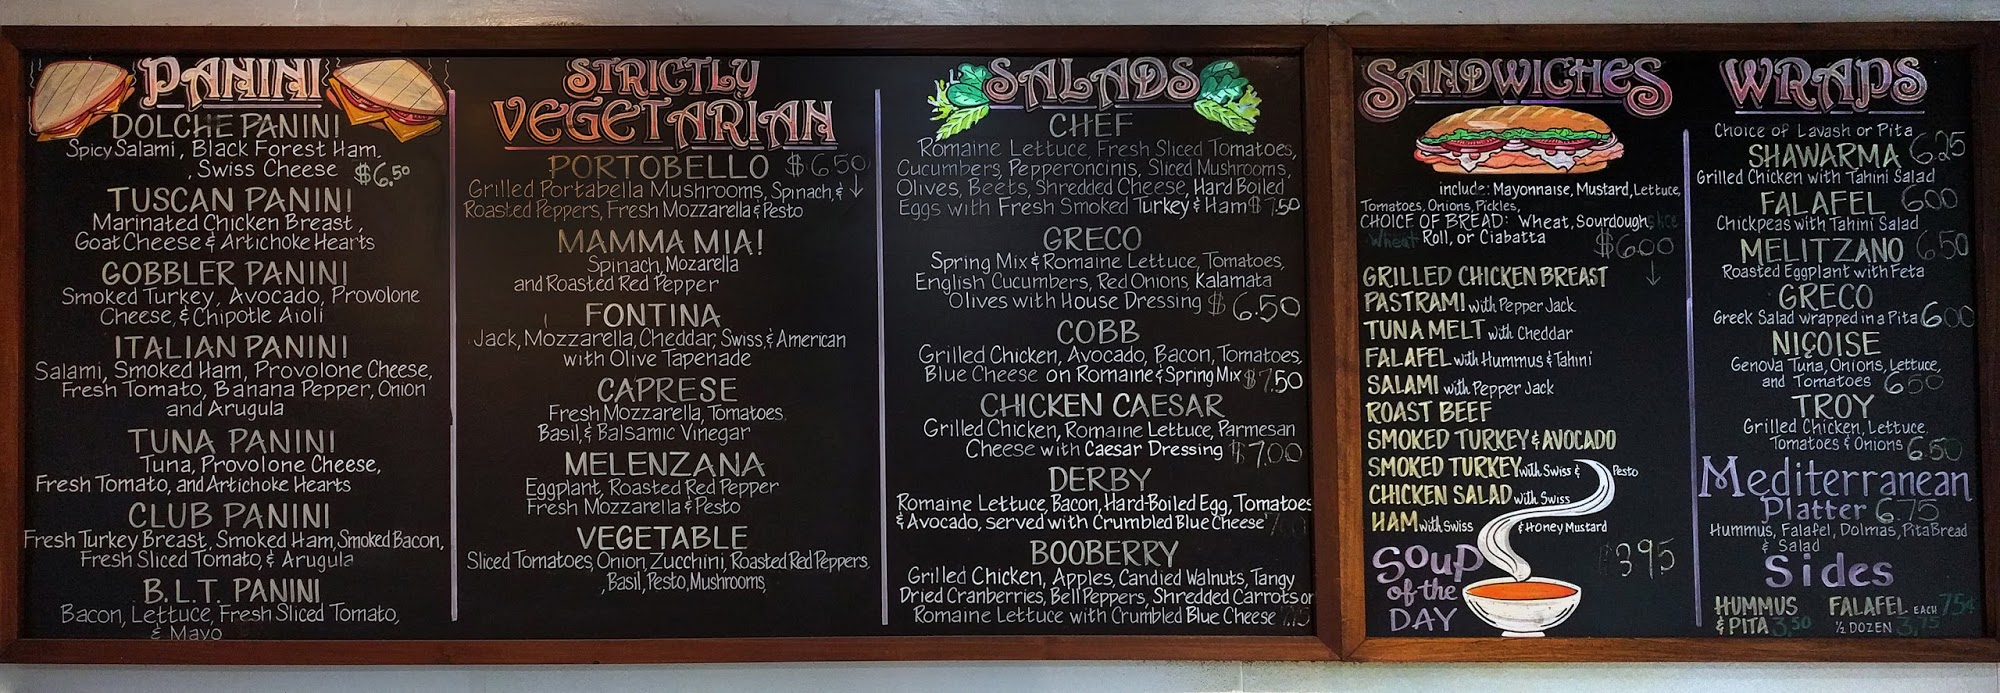 PANINI
DOLCHE PANINI
Spicy Salami, Black Forest Ham,
, Swiss Cheese $6.50
TUSCAN PANINI
Marinated Chicken Breast,
Goat Cheese & Artichoke Hearts
GOBBLER PANINI
Smoked Turkey, Avocado, Provolone
Cheese, & Chipotle Aioli
ITALIAN PANINI
Salami, Smoked Ham, Provolone Cheese,
Fresh Tomato, Banana Pepper, Onion
and Arugula
TUNA PANINI
Tuna, Provolone Cheese,
Fresh Tomato, and Artichoke Hearts
CLUB PANINI
Fresh Turkey Breast, Smoked Ham, Smoked Bacon,
Fresh Sliced Tomato, & Arugula
B.L.T. PANINI
Bacon, Lettuce, Fresh Sliced Tomato,
& Mayo
STRICTLY
VEGETARIAN
PORTOBELLO $6.50
Grilled Portabella Mushrooms, Spinach, & ↓
Roasted Peppers, Fresh Mozzarella & Pesto
MAMMA MIA!
Spinach, Mozarella
and Roasted Red Pepper
FONTINA
Jack, Mozzarella, Cheddar, Swiss, & American
with Olive Tapenade
CAPRESE
Fresh Mozzarella, Tomatoes,
Basil, & Balsamic Vinegar
MELENZANA
Eggplant, Roasted Red Pepper
Fresh Mozzarella & Pesto
VEGETABLE
Sliced Tomatoes, Onion, Zucchini, Roasted Red Peppers,
, Basil, Pesto, Mushrooms,
SALADS
CHEF
Romaine Lettuce, Fresh Sliced Tomatoes,
Cucumbers, Pepperoncinis, Sliced Mushrooms,
Olives, Beets, Shredded Cheese, Hard Boiled
Eggs with Fresh Smoked Turkey & Ham $7.50
GRECO
Spring Mix & Romaine Lettuce, Tomatoes,
English Cucumbers, Red Onions, Kalamata
Olives with House Dressing $6.50
COBB
Grilled Chicken, Avocado, Bacon, Tomatoes,
Blue Cheese on Romaine & Spring Mix $7.50
CHICKEN CAESAR
Grilled Chicken, Romaine Lettuce, Parmesan
Cheese with Caesar Dressing $7.00
DERBY
Romaine Lettuce, Bacon, Hard-Boiled Egg, Tomatoes
& Avocado, served with Crumbled Blue Cheese
BOOBERRY
Grilled Chicken, Apples, Candied Walnuts, Tangy
Dried Cranberries, Bell Peppers, Shredded Carrots on
Romaine Lettuce with Crumbled Blue Cheese
SANDWICHES
include: Mayonnaise, Mustard, Lettuce,
Tomatoes, Onions, Pickles,
CHOICE OF BREAD: Wheat, Sourdough,
Wheat Roll, or Ciabatta $6.00
↓
GRILLED CHICKEN BREAST
PASTRAMI with Pepper Jack
TUNA MELT with Cheddar
FALAFEL with Hummus & Tahini
SALAMI with Pepper Jack
ROAST BEEF
SMOKED TURKEY & AVOCADO
SMOKED TURKEY with Swiss & Pesto
CHICKEN SALAD with Swiss
HAM with Swiss & Honey Mustard
SOUP
of the
DAY
$3.95
WRAPS
Choice of Lavash or Pita
SHAWARMA 6.25
Grilled Chicken with Tahini Salad
FALAFEL 6.00
Chickpeas with Tahini Salad
MELITZANO 6.50
Roasted Eggplant with Feta
GRECO
Greek Salad wrapped in a Pita 6.00
NIÇOISE
Genova Tuna, Onions, Lettuce,
and Tomatoes 6.50
TROY
Grilled Chicken, Lettuce,
Tomatoes & Onions 6.50
Mediterranean
Platter 6.75
Hummus, Falafel, Dolmas, Pita Bread
& Salad
Sides
HUMMUS
& PITA 3.50
FALAFEL EACH 75¢
½ DOZEN 3.75